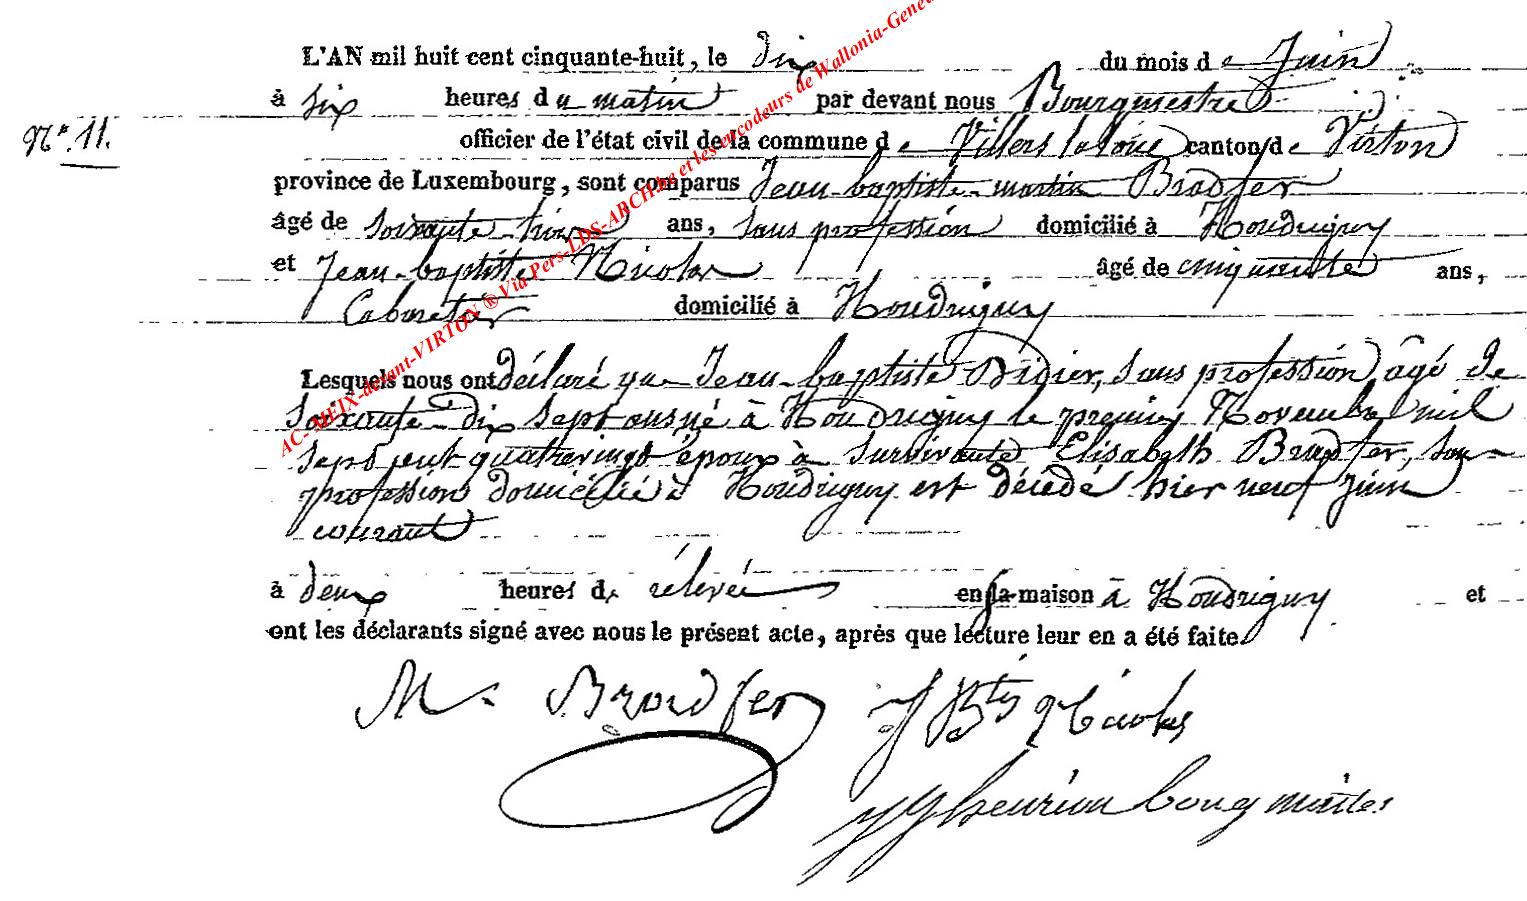 L'AN mil huit cent cinquante-huit, le dix du mois de Juin
à six heures du matin par devant nous Bourgmestre
N° 11. officier de l'état civil de la commune de Villers la loüe canton de Virton
province de Luxembourg, sont comparus Jean-baptiste-martin Bradfer
âgé de soixante trois ans, sans profession domicilié à Houdrigny
et Jean-baptiste Nicolas âgé de cinquante ans,
Cabaretier domicilié à Houdrigny
Lesquels nous ont déclaré que Jean-baptiste Didier, sans profession âgé de
soixante-dix sept ans né à Houdrigny le premier Novembre mil
sept cent quatrevingt époux à survivante Elisabeth Bradfer, sans
profession domicilié à Houdrigny est décédé hier neuf juin
courant
à deux heures de rélevée en sa maison à Houdrigny et
ont les déclarants signé avec nous le présent acte, après que lecture leur en a été faite.
M. Bradfer J Bte Nicolas
henrion bourgmestre
AC-MEIX-devant-VIRTON ® Via Pers-LDS-ARCH.be et les encodeurs de Wallonia-Genea